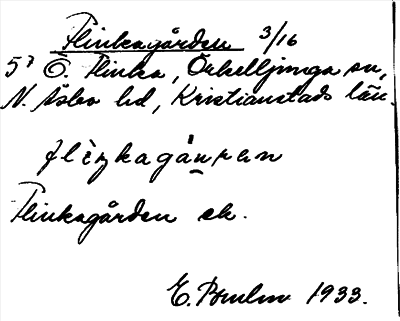 Flinkagården 3/16
5⁷ Ö. Flinka, Örkelljunga sn,
N. Åsbo hd, Kristianstads län.
flèŋkagåu̯rɐn
Flinkagården ek.
E. 1933.